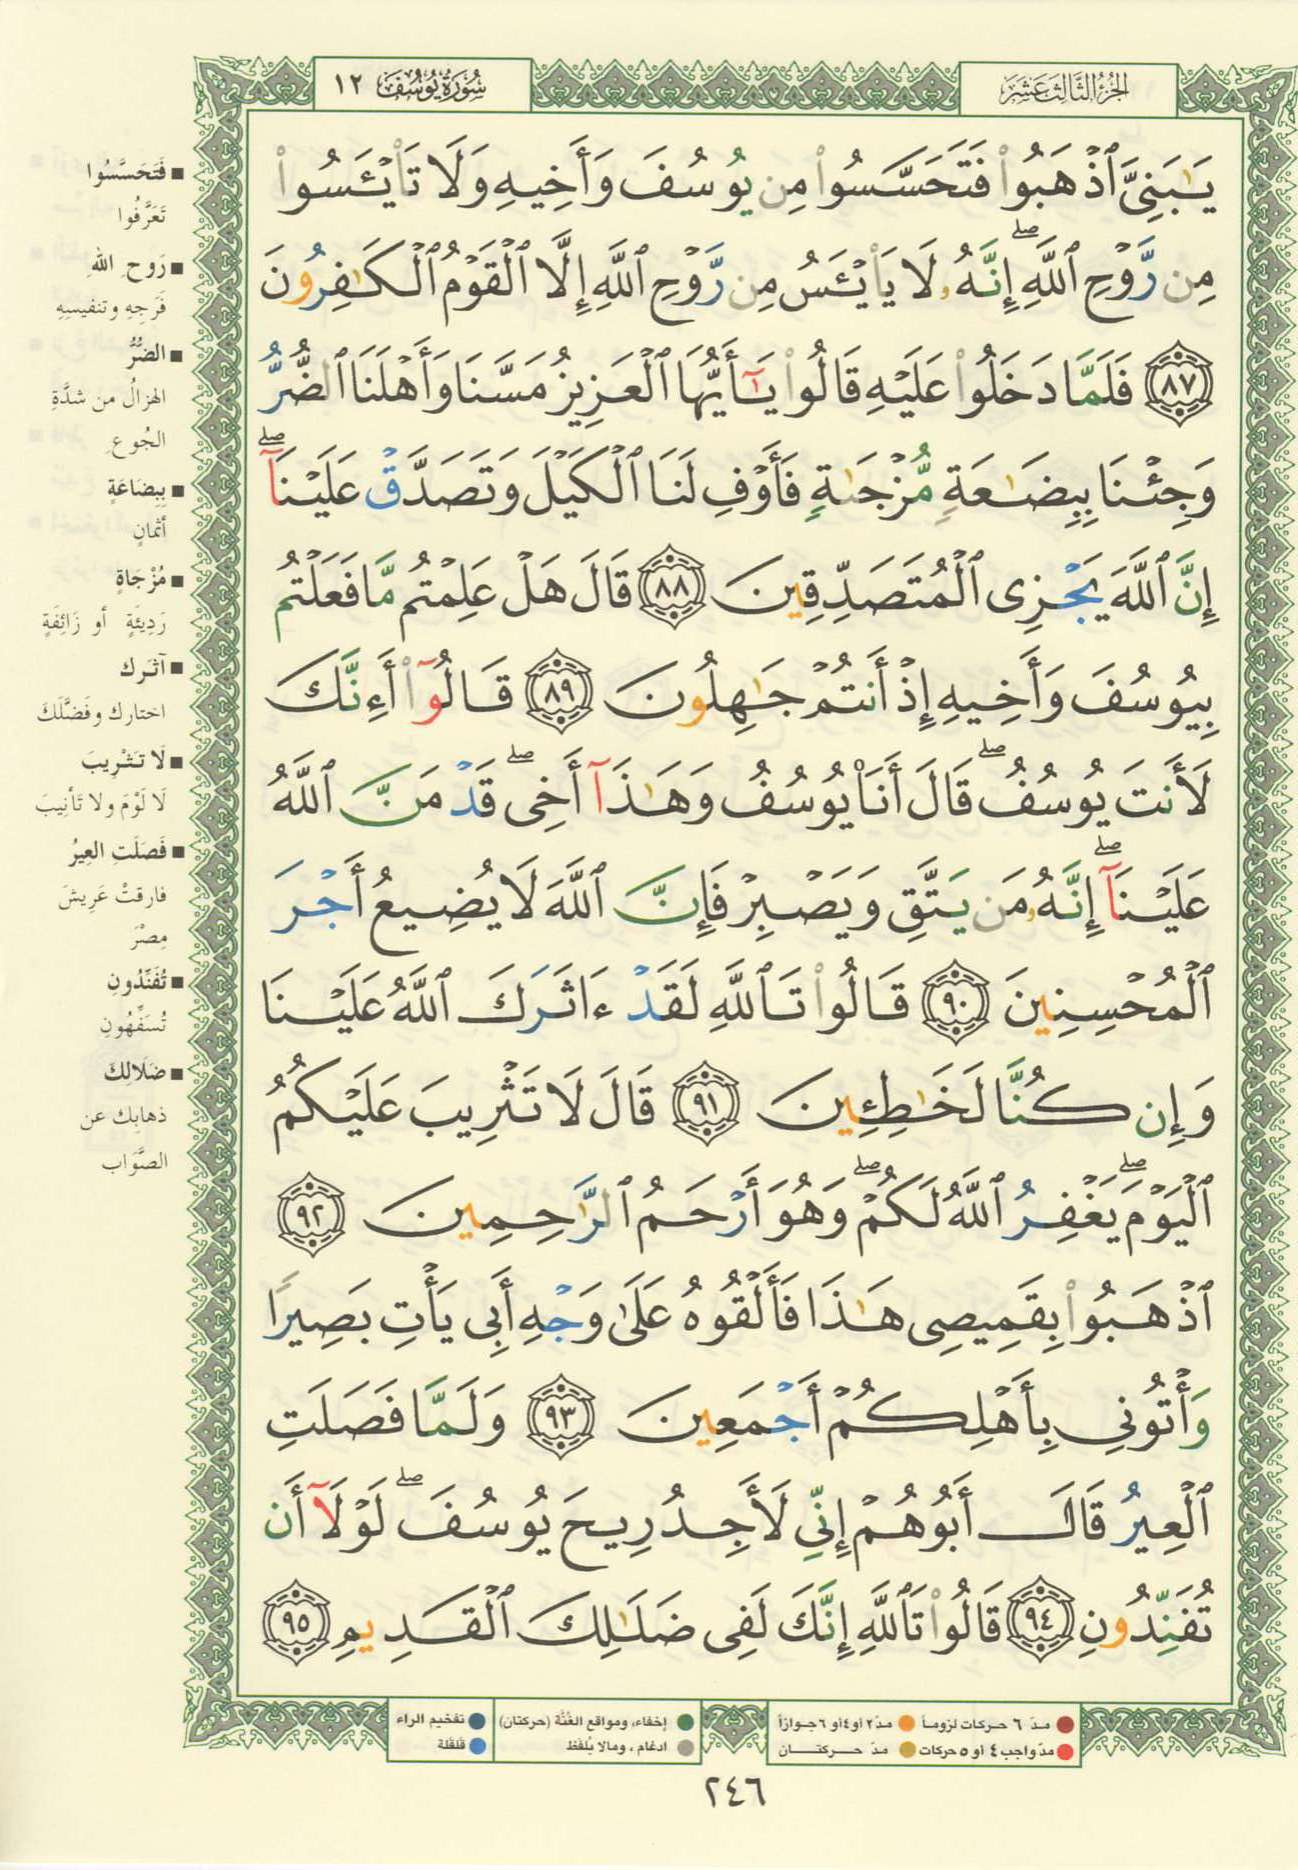 الجزء الثالث عشر
سورة يوسف ١٢
يَـٰبَنِىَّ ٱذْهَبُوا۟ فَتَحَسَّسُوا۟ مِن يُوسُفَ وَأَخِيهِ وَلَا تَا۟يْـَٔسُوا۟
مِن رَّوْحِ ٱللَّهِ ۖ إِنَّهُۥ لَا يَا۟يْـَٔسُ مِن رَّوْحِ ٱللَّهِ إِلَّا ٱلْقَوْمُ ٱلْكَـٰفِرُونَ
٨٧ فَلَمَّا دَخَلُوا۟ عَلَيْهِ قَالُوا۟ يَـٰٓأَيُّهَا ٱلْعَزِيزُ مَسَّنَا وَأَهْلَنَا ٱلضُّرُّ
وَجِئْنَا بِبِضَـٰعَةٍ مُّزْجَىٰةٍ فَأَوْفِ لَنَا ٱلْكَيْلَ وَتَصَدَّقْ عَلَيْنَآ ۖ
إِنَّ ٱللَّهَ يَجْزِى ٱلْمُتَصَدِّقِينَ ٨٨ قَالَ هَلْ عَلِمْتُم مَّا فَعَلْتُم
بِيُوسُفَ وَأَخِيهِ إِذْ أَنتُمْ جَـٰهِلُونَ ٨٩ قَالُوٓا۟ أَءِنَّكَ
لَأَنتَ يُوسُفُ ۖ قَالَ أَنَا۠ يُوسُفُ وَهَـٰذَآ أَخِى ۖ قَدْ مَنَّ ٱللَّهُ
عَلَيْنَآ ۖ إِنَّهُۥ مَن يَتَّقِ وَيَصْبِرْ فَإِنَّ ٱللَّهَ لَا يُضِيعُ أَجْرَ
ٱلْمُحْسِنِينَ ٩٠ قَالُوا۟ تَٱللَّهِ لَقَدْ ءَاثَرَكَ ٱللَّهُ عَلَيْنَا
وَإِن كُنَّا لَخَـٰطِـِٔينَ ٩١ قَالَ لَا تَثْرِيبَ عَلَيْكُمُ
ٱلْيَوْمَ ۖ يَغْفِرُ ٱللَّهُ لَكُمْ ۖ وَهُوَ أَرْحَمُ ٱلرَّٰحِمِينَ ٩٢
ٱذْهَبُوا۟ بِقَمِيصِى هَـٰذَا فَأَلْقُوهُ عَلَىٰ وَجْهِ أَبِى يَأْتِ بَصِيرًا
وَأْتُونِى بِأَهْلِكُمْ أَجْمَعِينَ ٩٣ وَلَمَّا فَصَلَتِ
ٱلْعِيرُ قَالَ أَبُوهُمْ إِنِّى لَأَجِدُ رِيحَ يُوسُفَ ۖ لَوْلَآ أَن
تُفَنِّدُونِ ٩٤ قَالُوا۟ تَٱللَّهِ إِنَّكَ لَفِى ضَلَـٰلِكَ ٱلْقَدِيمِ ٩٥
■ فَتَحَسَّسُوا
تَعَرَّفُوا
■ رَوحِ اللهِ
فَرَجِهِ وتنفيسِهِ
■ الضُّرُّ
الهزالُ من شدَّةِ
الجُوعِ
■ بِبِضَاعَةٍ
أثمانٍ
■ مُزْجَاةٍ
رَدِيئَةٍ أو زَائِفَةٍ
■ آثَرك
اختارك وفَضَّلَكَ
■ لَا تَثْرِيبَ
لَا لَوْمَ ولا تَأنِيبَ
■ فَصَلَتِ العِيرُ
فارقتْ عَرِيشَ
مِصْرَ
■ تُفَنِّدُونِ
تُسَفِّهُونِ
■ ضَلَالكَ
ذهابِك عن
الصَّوَاب
مدّ ٦ حركات لزوماً
مدّ ٢ أو ٤ أو ٦ جوازاً
إخفاء، ومواقع الغُنَّة (حركتان)
تفخيم الراء
مدّ واجب ٤ أو ٥ حركات
مدّ حركتان
ادغام، ومالا يُلفظ
قلقلة
٢٤٦